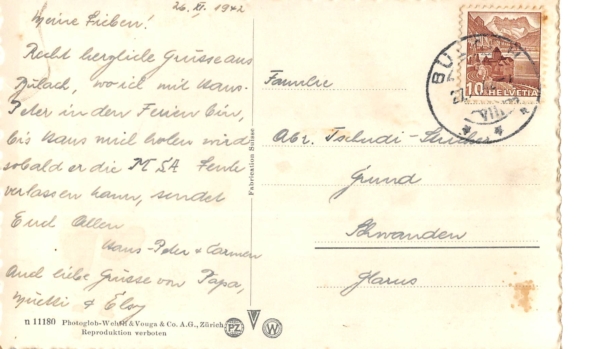 26. XI. 1942
Meine Lieben!
Recht herzliche Grüsse aus
Bülach, wo ich mit Hans-
Peter in den Ferien bin,
bis Hans mich holen wird
sobald er die MSA Leute
verlassen kann, sendet
Euch Allen
Hans-Peter & Carmen
Auch liebe Grüsse von Papa,
Muetti & Elsy
n 11180 Photoglob-Wehrli & Vouga & Co. A.G., Zürich
Reproduktion verboten
PZ W
Fabrication Suisse
10 HELVETIA
VIII
Familie
Abr. Tschudi-
Grund
Schwanden
Glarus